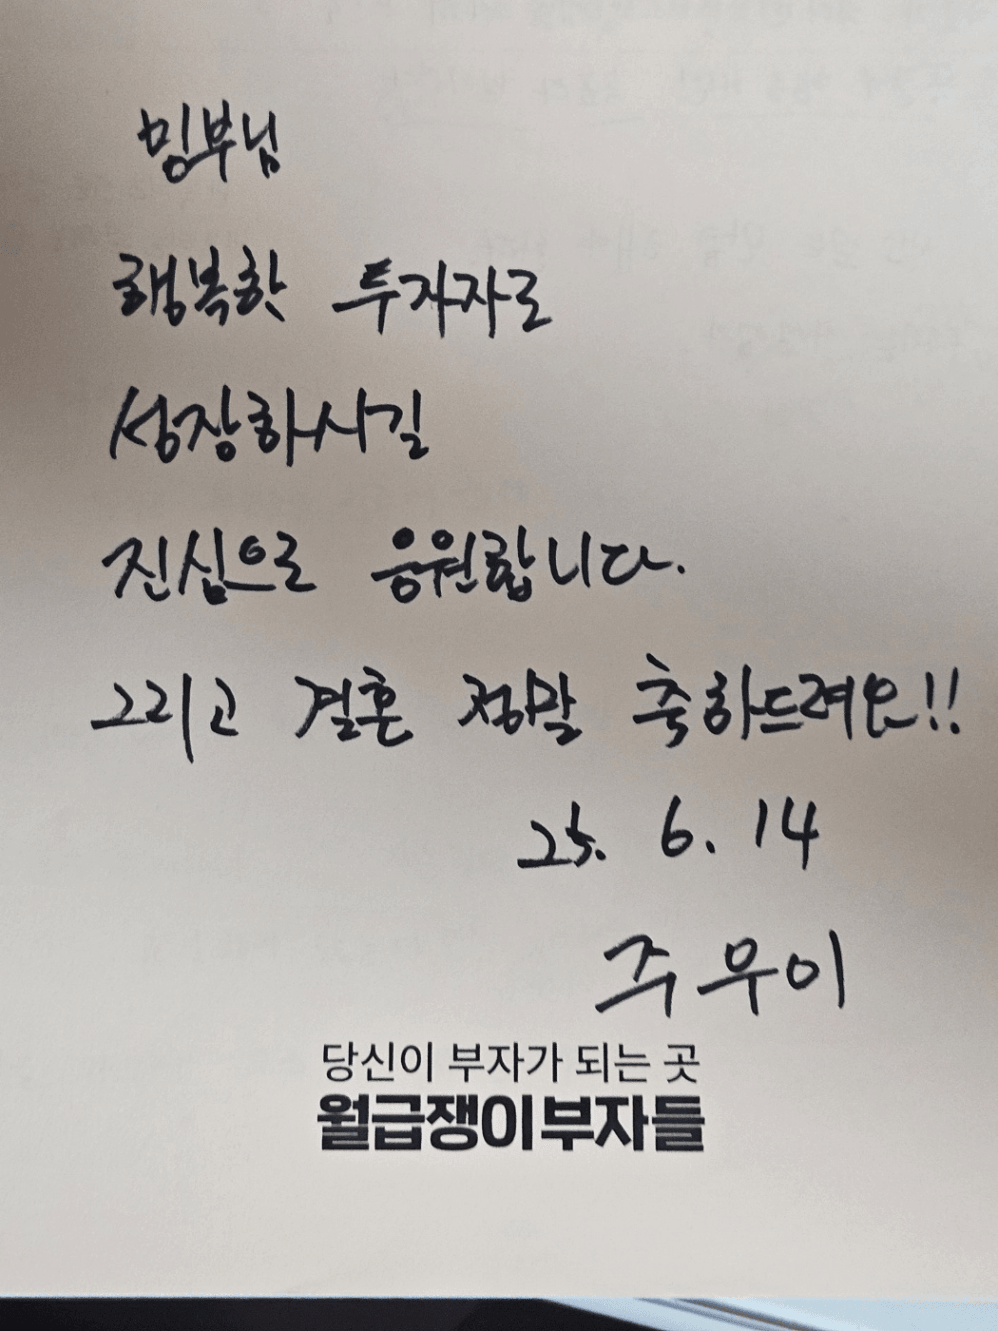 밍부님
행복한 투자자로
성장하시길
진심으로 응원합니다.
그리고 결혼 정말 축하드려요!!
25. 6. 14
주우이
당신이 부자가 되는 곳
월급쟁이부자들